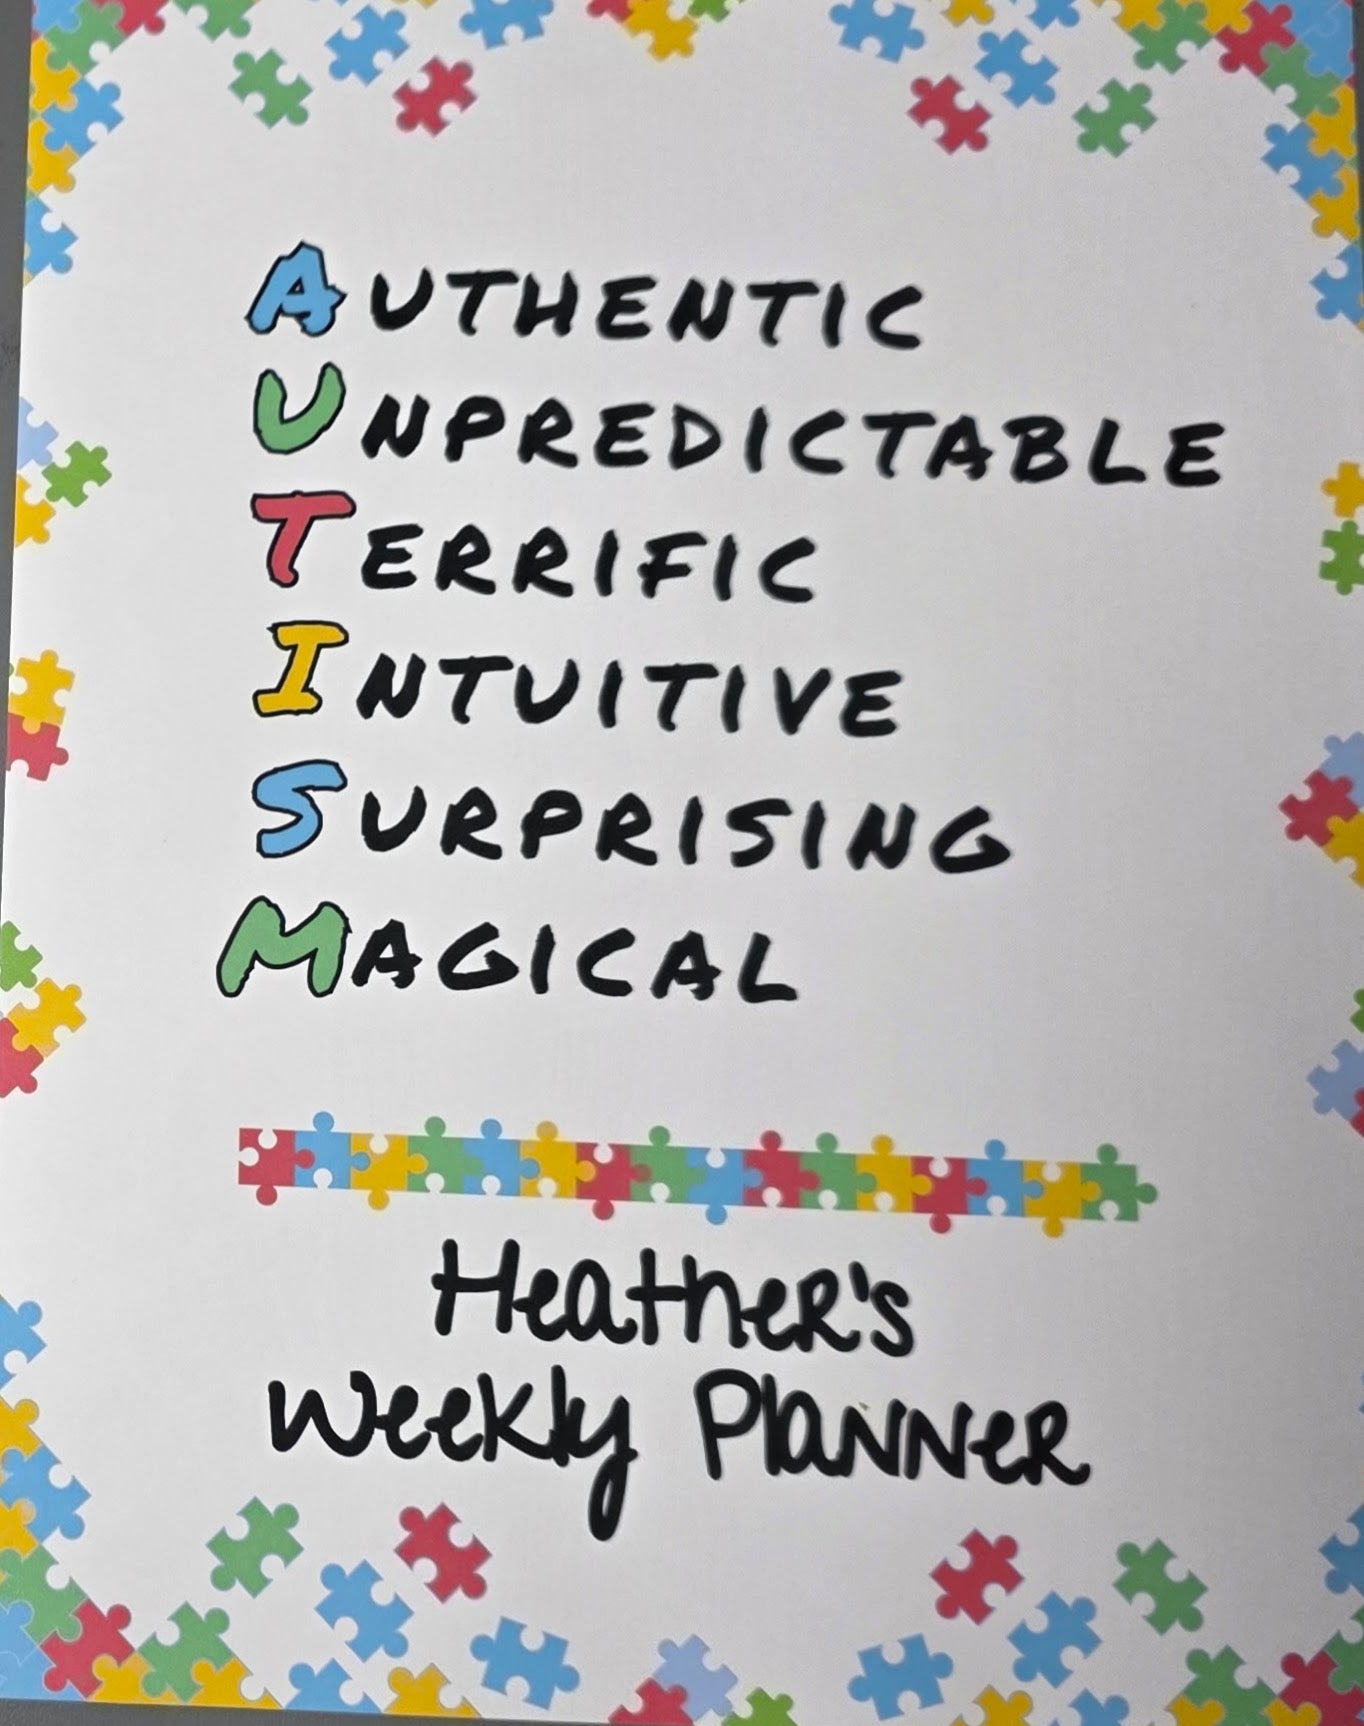 AUTHENTIC
UNPREDICTABLE
TERRIFIC
INTUITIVE
SURPRISING
MAGICAL
Heather's
Weekly Planner